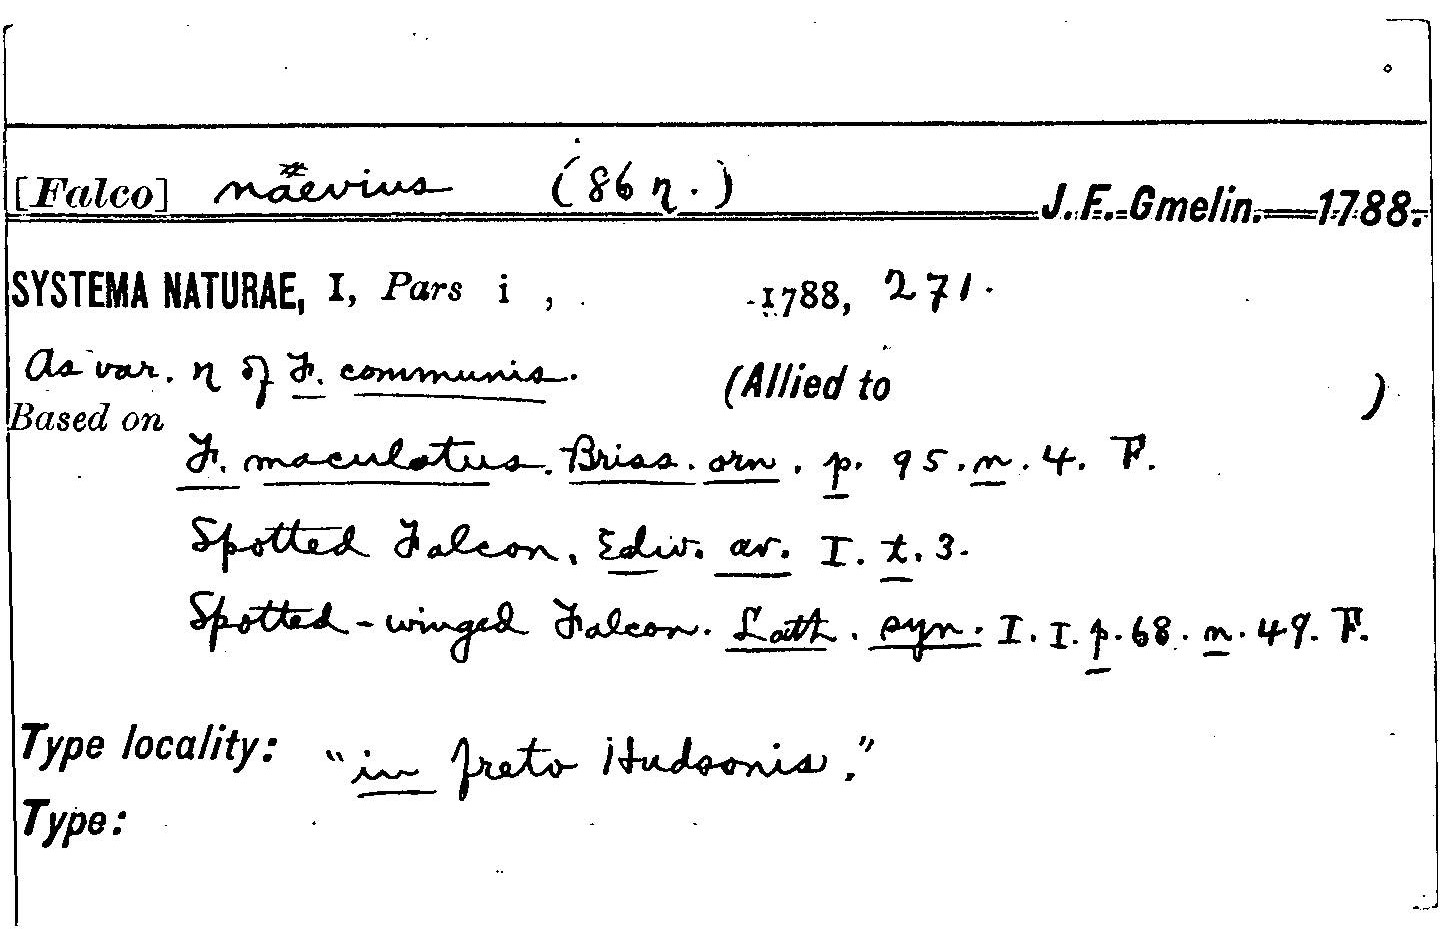 [Falco] naevius (86 η.) J. F. Gmelin. 1788.
SYSTEMA NATURAE, I, Pars i , 1788, 271.
As var. η of F. communis. (Allied to )
Based on
F. maculatus. Briss. orn. p. 95. n. 4. F.
Spotted Falcon. Edw. av. I. t. 3.
Spotted-winged Falcon. Lath. syn. I. I. p. 68. n. 49. F.
Type locality: "in freto Hudsonis."
Type: